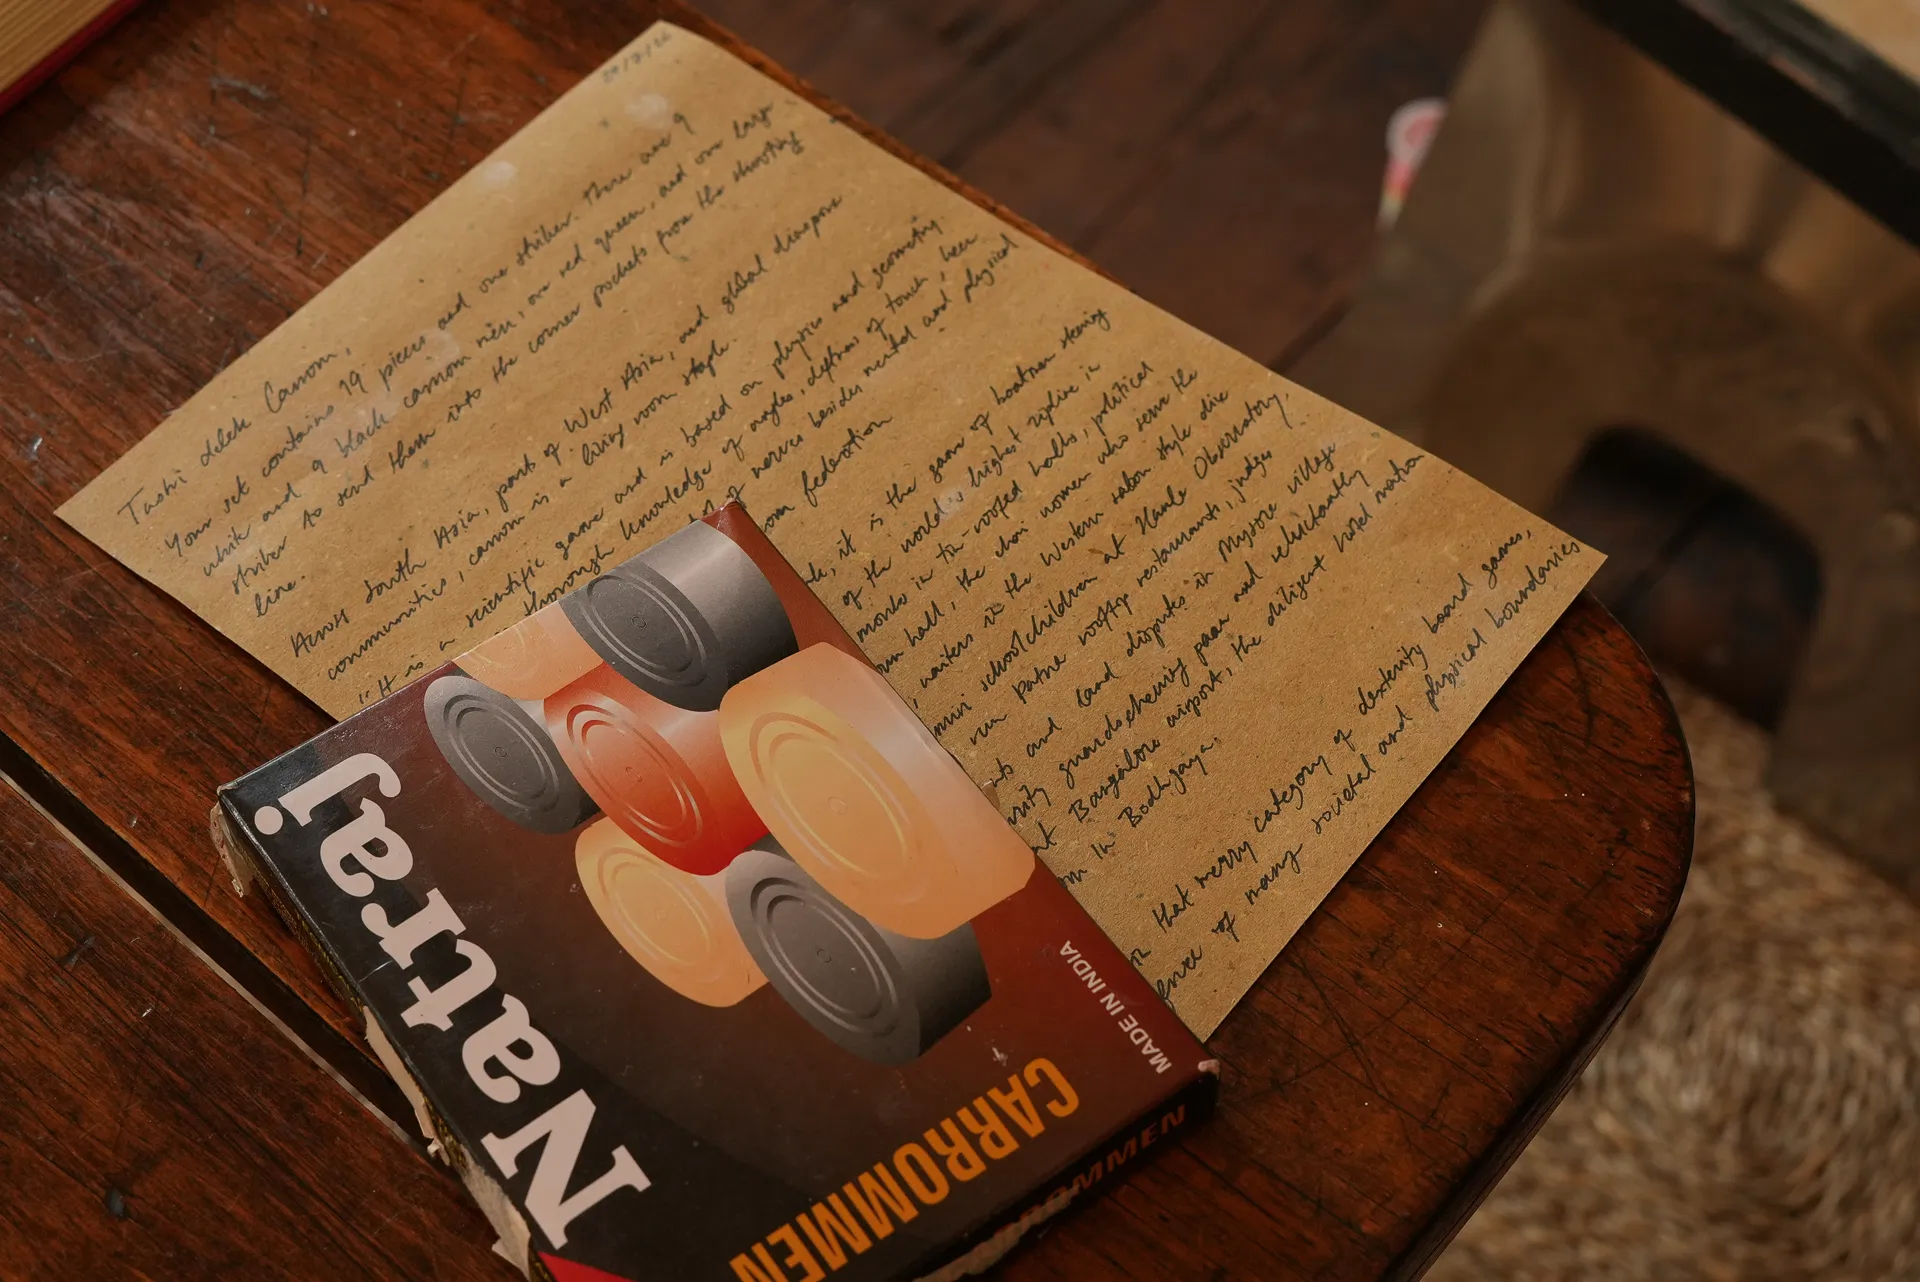 Tashi delek Carrom,
Your set contains 19 pieces and one striker. There are 9
white and 9 black carrom men, one red queen, and one large
striker to send them into the corner pockets from the shooting
line.
Across South Asia, parts of West Asia, and global diaspora
communities, carrom is a living room staple.
"It is a scientific game and is based on physics and geometry.
through knowledge of angles, deftness of touch, keen
of nerves besides mental and physical
federation
it is the game of boatmen steering
of the world's highest zipline in
monks in tin-roofed halls, political
hall, the chai women who serve the
waiters in the Western salon style
schoolchildren at Hanle Observatory,
run Patna rooftop restaurants, judges
and land disputes in Mysore village
guards chewing paan and reluctantly
at Bangalore airport, the diligent hotel matron
in Bodhgaya.
that merry category of dexterity board games,
of many societal and physical boundaries
Natraj
CARROMMEN
MADE IN INDIA
CARROMMEN